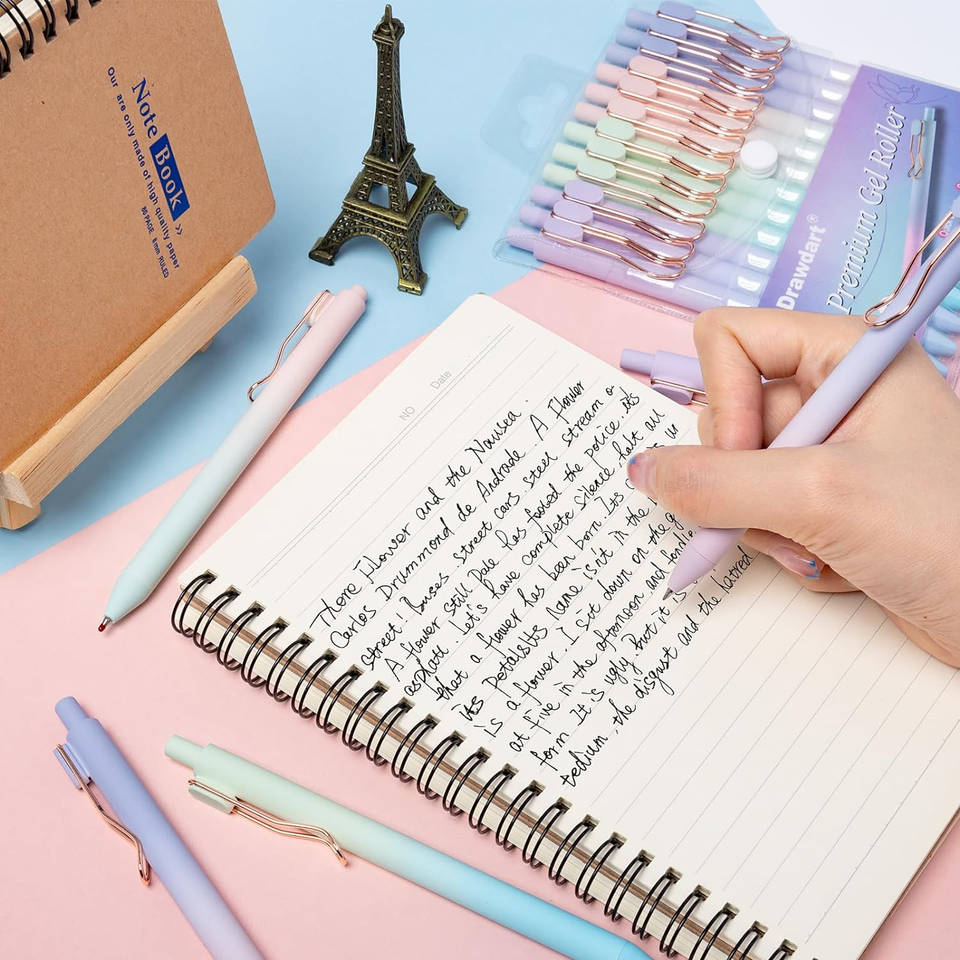 Note Book >>
Our are only made of high quality paper
80 PAGE 8mm RULED
Drawdart®
Premium Gel Roller
NO Date
There Flower and the Nausea.
Carlos Drummond de Andrade A Flower
street! Buses street cars steel stream o
A flower still Pale has fooled the police. its
asphatl Let's have complete silence halt all
that a flower has been born. Its
its Petalslts Name isn't in the
is a flower. I sit down on the g
at five in the afternoon and fondle
form It is ugly But, it is
tedium, the disgust and the hatred